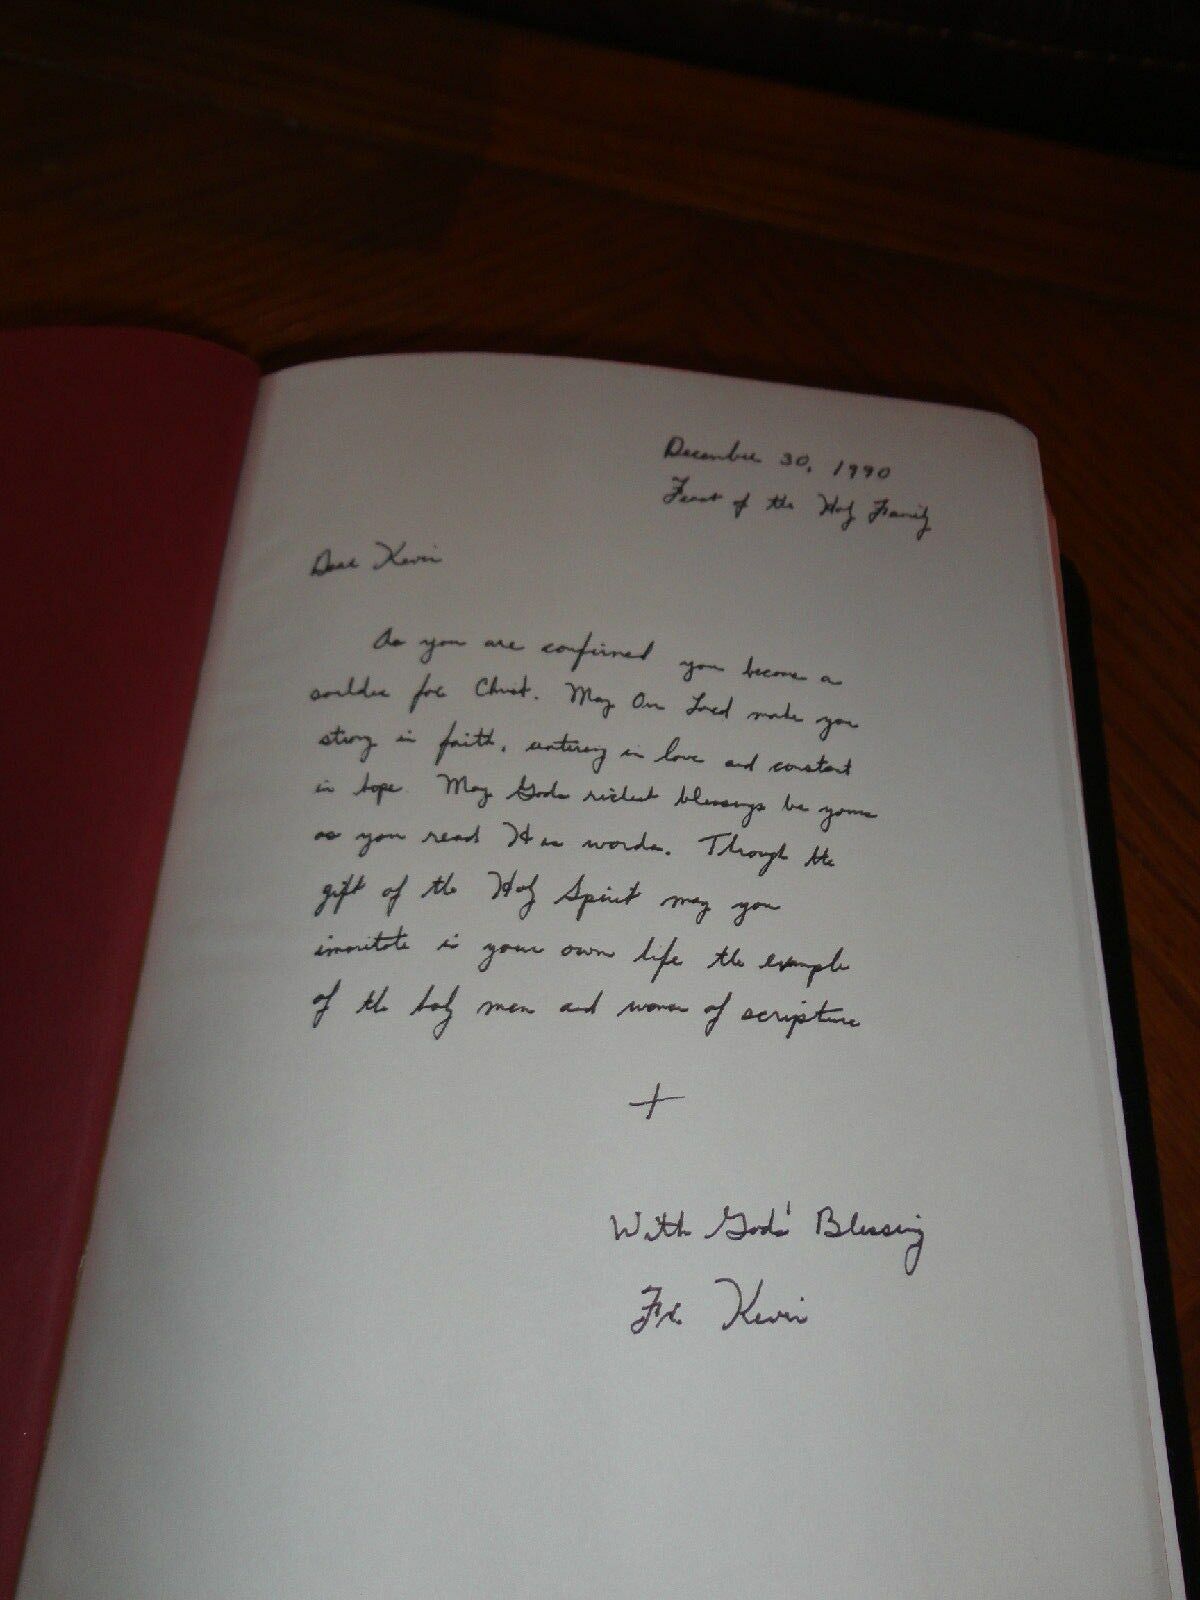 December 30, 1990
Feast of the Holy Family
Dear Kevin
As you are confirmed you become a
souldier for Christ. May Our Lord make you
strong in faith, untiring in love and constant
in hope. May Gods richest blessings be yours
as you read His words. Through the
gift of the Holy Spirit may you
immitate in your own life the example
of the holy men and women of scripture
+
With Gods' Blessing
Fr. Kevin